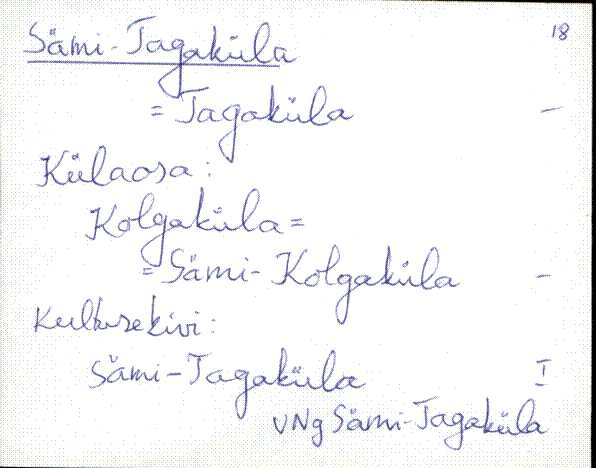 18
Sämi-Tagaküla
= Tagaküla –
Külaosa:
Kolgaküla =
= Sämi-Kolgaküla –
Kultusekivi:
Sämi-Tagaküla I
VNg Sämi-Tagaküla